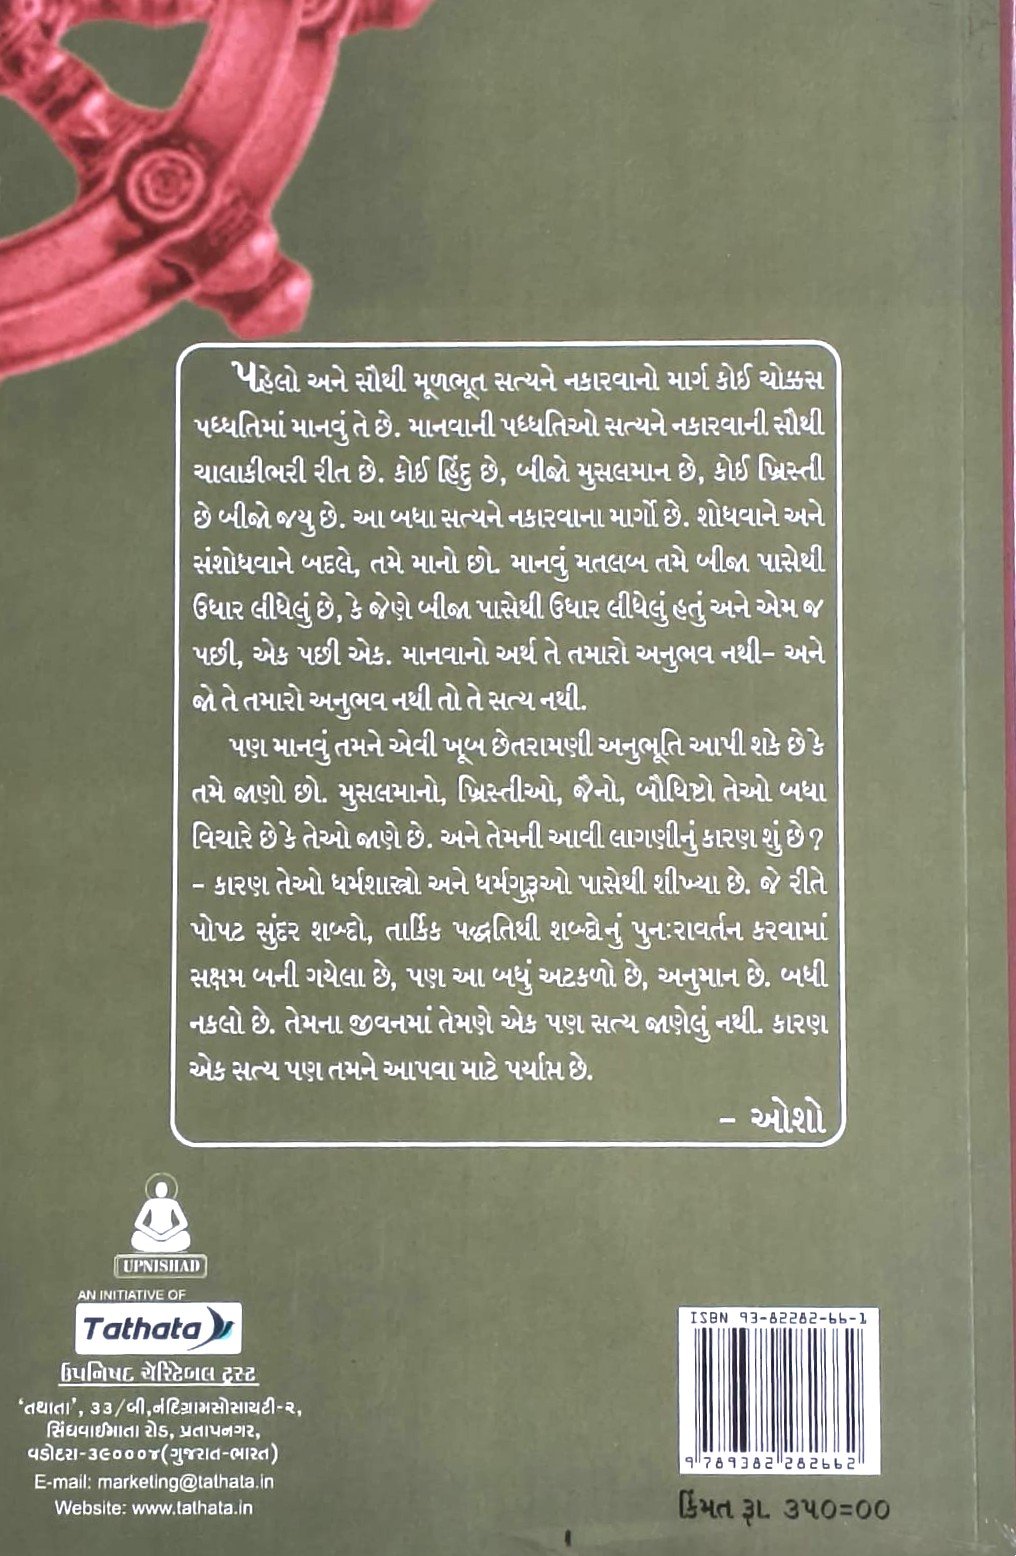 પહેલો અને સૌથી મૂળભૂત સત્યને નકારવાનો માર્ગ કોઈ ચોક્કસ
પધ્ધતિમાં માનવું તે છે. માનવાની પધ્ધતિઓ સત્યને નકારવાની સૌથી
ચાલાકીભરી રીત છે. કોઈ હિંદુ છે, બીજો મુસલમાન છે, કોઈ ખ્રિસ્તી
છે બીજો જયુ છે. આ બધા સત્યને નકારવાના માર્ગો છે. શોધવાને અને
સંશોધવાને બદલે, તમે માનો છો. માનવું મતલબ તમે બીજા પાસેથી
ઉધાર લીધેલું છે, કે જેણે બીજા પાસેથી ઉધાર લીધેલું હતું અને એમ જ
પછી, એક પછી એક. માનવાનો અર્થ તે તમારો અનુભવ નથી– અને
જો તે તમારો અનુભવ નથી તો તે સત્ય નથી.
પણ માનવું તમને એવી ખૂબ છેતરામણી અનુભૂતિ આપી શકે છે કે
તમે જાણો છો. મુસલમાનો, ખ્રિસ્તીઓ, જૈનો, બૌધિષ્ટો તેઓ બધા
વિચારે છે કે તેઓ જાણે છે. અને તેમની આવી લાગણીનું કારણ શું છે?
– કારણ તેઓ ધર્મશાસ્ત્રો અને ધર્મગુરૂઓ પાસેથી શીખ્યા છે. જે રીતે
પોપટ સુંદર શબ્દો, તાર્કિક પદ્ધતિથી શબ્દોનું પુનઃરાવર્તન કરવામાં
સક્ષમ બની ગયેલા છે, પણ આ બધું અટકળો છે, અનુમાન છે. બધી
નકલો છે. તેમના જીવનમાં તેમણે એક પણ સત્ય જાણેલું નથી. કારણ
એક સત્ય પણ તમને આપવા માટે પર્યાપ્ત છે.
– ઓશો
UPNISHAD
AN INITIATIVE OF
Tathata
ઉપનિષદ ચેરિટેબલ ટ્રસ્ટ
‘તથાતા’, ૩૩/બી,નંદિગ્રામસોસાયટી-૨,
સિંધવાઈમાતા રોડ, પ્રતાપનગર,
વડોદરા-૩૯૦૦૦૪(ગુજરાત-ભારત)
E-mail: marketing@tathata.in
Website: www.tathata.in
ISBN 93-82282-66-1
9 789382 282662
કિંમત રૂા. ૩૫૦=૦૦